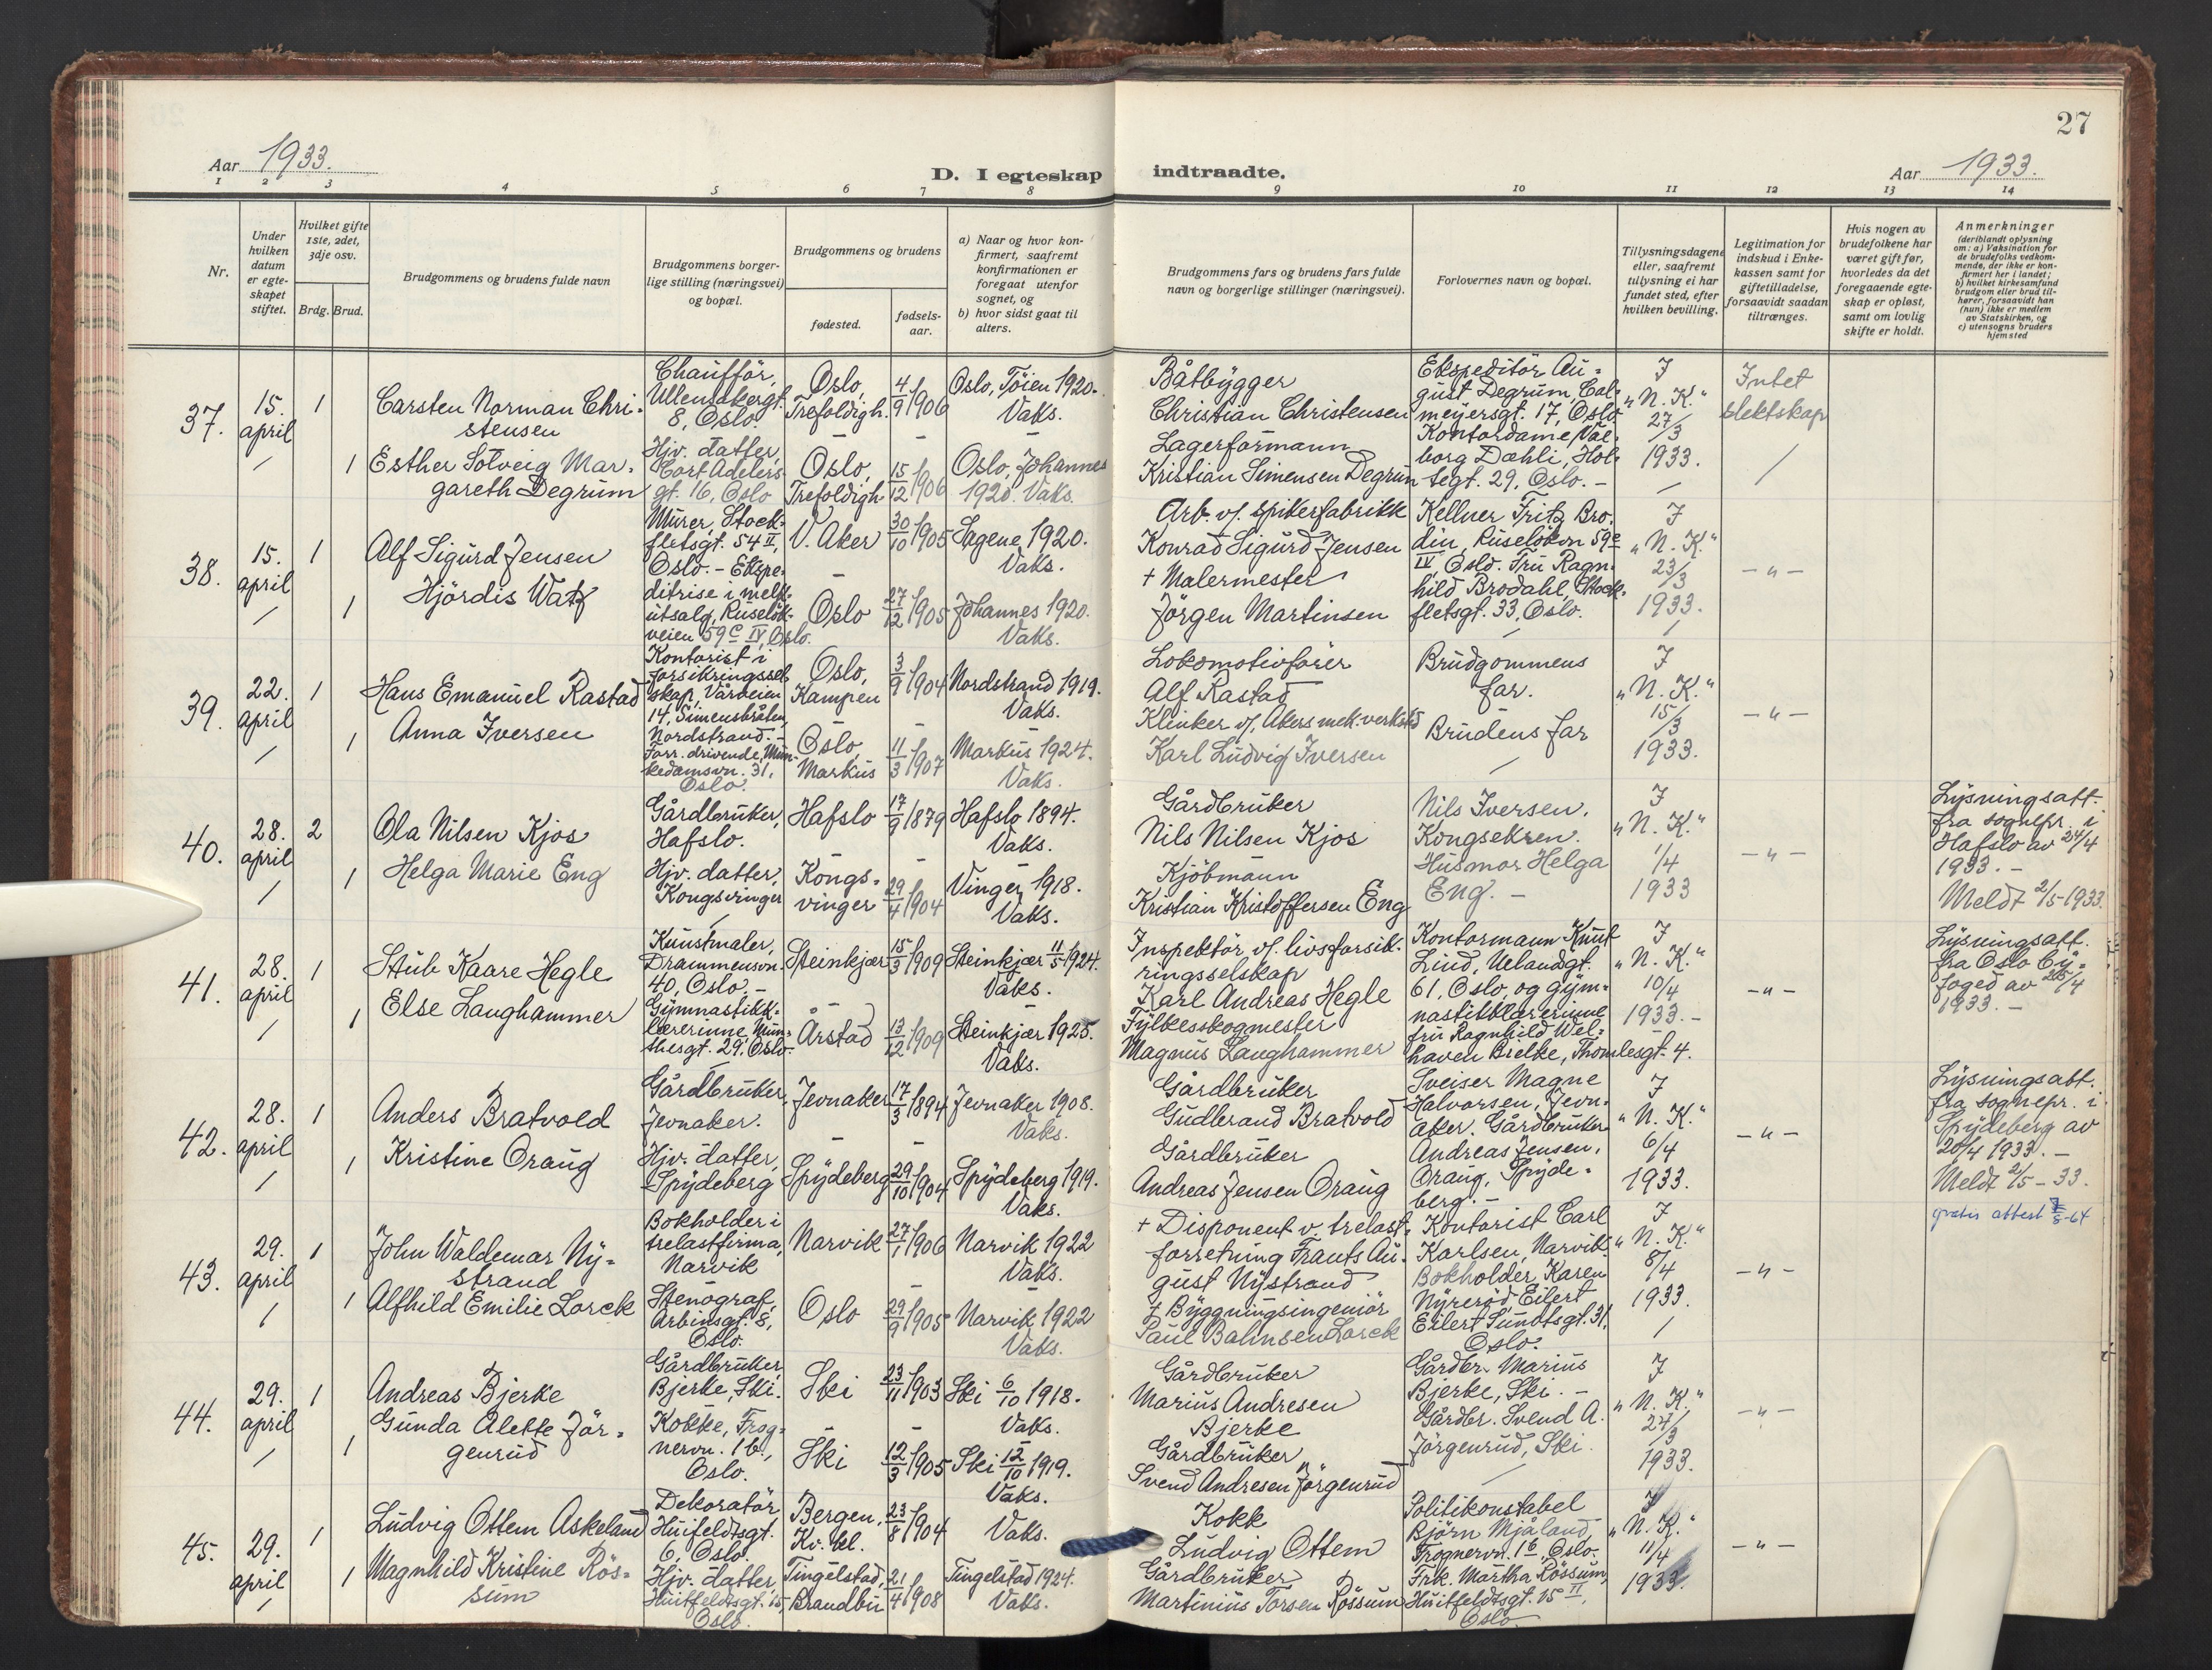 27
Aar 1933.
D. I egteskap indtraadte.
Aar 1933.
1 2 3 4 5 6 7 8 9 10 11 12 13 14
Nr.
Under hvilken datum er egte-skapet stiftet.
Hvilket gifte 1ste, 2det, 3dje osv.
Brdg. Brud.
Brudgommens og brudens fulde navn
Brudgommens borger-lige stilling (næringsvei) og bopæl.
Brudgommens og brudens
fødested.
fødsels-aar.
a) Naar og hvor kon-firmert, saafremt konfirmationen er foregaat utenfor sognet, og
b) hvor sidst gaat til alters.
Brudgommens fars og brudens fars fulde navn og borgerlige stillinger (næringsvei).
Forlovernes navn og bopæl.
Tillysningsdagene eller, saafremt tillysning ei har fundet sted, efter hvilken bevilling.
Legitimation for indskud i Enke-kassen samt for giftetilladelse, forsaavidt saadan tiltrænges.
Hvis nogen av brudefolkene har været gift før, hvorledes da det foregaaende egte-skap er opløst, samt om lovlig skifte er holdt.
Anmerkninger
(deriblandt oplysning om: a) Vaksination for de brudefolks vedkom-mende, der ikke er kon-firmert her i landet; b) hvilket kirkesamfund brudgom eller brud til-hører, forsaavidt han (hun) ikke er medlem av Statskirken, og c) utensogns bruders hjemsted
37. 15. april 1
Carsten Norman Chri-stensen
Chaufför, Ullevålsbergt. 8, Oslo.
Oslo, Trefoldigh. 4/9 1906
Oslo, Töien 1920. Vaks.
Båtbygger Christian Christensen
Ekspeditör August Degrum, Calmeyersgt. 17, Oslo.
I "N. K." 27/3 1933.
Intet slektskap
1 Esther Solveig Mar-gareth Degrum
Hjv. datter, Cort Adelers gt. 16, Oslo
Oslo, Trefoldigh 15/12 1906
Oslo, Johannes 1920. Vaks.
Lagerformann Kristian Simensen Degrum
Kontordame Valborg Dæhli, Holtegt. 29, Oslo. -
38. 15. april 1
Alf Sigurd Jensen
Murer, Stockfletsgt. 54 II, Oslo. -
V. Aker 30/10 1905
Sagene 1920. Vaks.
Arb. v/ spikerfabrikk Konrad Sigurd Jensen
Kellner Fritz Brodin, Ruselökvn 59c IV, Oslo.
I "N. K." 23/3 1933.
- " -
1 Hjördis Watz
Ekspeditrise i melkutsalg, Ruselökveien 59c IV, Oslo.
Oslo 27/12 1905
Johannes 1920. Vaks.
+ Malermester Jörgen Martinsen
Fru Ragnhild Brodahl, Stockfletsgt. 33, Oslo.
39. 22. april 1
Hans Emanuel Rastad
Kontorist i forsikringsselskap, Vårveien 14, Simensbråten, Nordstrand. -
Oslo, Kampen 3/9 1904
Nordstrand 1919. Vaks.
Lokomotivförer Alf Rastad
Brudgommens far.
I "N. K." 15/3 1933.
- " -
1 Anna Iversen
Forr. drivende, Munkedamsvn. 31, Oslo.
Oslo Markus 11/3 1907
Markus 1924. Vaks.
Klinker v/ Akers mek. verksted Karl Ludvig Iversen
Brudens far
40. 28. april 2
Ola Nilsen Kjos
Gårdbruker, Hafslo.
Hafslo 17/9 1879
Hafslo 1894. Vaks.
Gårdbruker Nils Nilsen Kjos
Nils Iversen, Kongsekren.
I "N. K." 1/4 1933
- " -
Lysningsatt. fra sognepr. i Hafslo av 24/4 1933. -
Meldt 2/5-1933.
1 Helga Marie Eng
Hjv. datter, Kongsvinger
Kongsvinger 29/4 1904
Vinger 1918. Vaks.
Kjöbmann Kristian Kristoffersen Eng
Husmor Helga Eng. -
41. 28. april 1
Stub Kaare Hegle
Kunstmaler, Drammensvn. 40, Oslo. -
Steinkjær 15/3 1909
Steinkjær 11/5 1924. Vaks.
Inspektör v/ livsforsikringsselskap Karl Andreas Hegle
Kontormann Knut Lind, Uelandsgt. 61, Oslo, og gymnastikklærerinne
I "N. K." 10/4 1933. -
- " -
Lysningsatt. fra Oslo byfoged av 26/4 1933. -
1 Else Langhammer
Gymnastikklærerinne, Munthesgt. 29, Oslo.
Årstad 13/12 1909
Steinkjær 1925. Vaks.
Fylkesskogmester Magnus Langhammer
fru Ragnhild Welhaven Brelke, Thomlesgt. 4.
42. 28. april 1
Anders Bratvold
Gårdbruker, Jevnaker.
Jevnaker 17/3 1894
Jevnaker 1908. Vaks.
Gårdbruker Gudbrand Bratvold
Sveiser Magne Halvorsen, Jevnaker.
I "N. K." 6/4 1933.
- " -
Lysningsatt. fra sognepr. i Spydeberg av 20/4 1933. -
Meldt 2/5 - 33.
1 Kristine Oraug
Hjv. datter, Spydeberg
Spydeberg 29/10 1904
Spydeberg 1919. Vaks.
Gårdbruker Andreas Jensen Oraug
Gårdbruker Andreas Jensen, Oraug, Spydeberg. -
43. 29. april 1
John Waldemar Ny-strand
Bokholder i trelastfirma, Narvik
Narvik 27/1 1906
Narvik 1922 Vaks.
+ Disponent v. trelastforretning Frants August Nystrand
Kontorist Carl Karlsen, Narvik.
I "N. K." 8/4 1933.
- " -
gratis attest 7/8-64
1 Alfhild Emilie Lorck
Stenograf, Arbinsgt. 8, Oslo.
Oslo 29/9 1905
Narvik 1922 Vaks.
+ Byggningsingeniör Paul Bahnsen Lorck
Bokholder Karen Nyreröd, Eilert Eilert Sundtsgt. 31, Oslo.
44. 29. april 1
Andreas Bjerke
Gårdbruker, Bjerke, Ski.
Ski 23/11 1903
Ski 6/10 1918. Vaks.
Gårdbruker Marius Andresen Bjerke
Gårdbr. Marius Bjerke, Ski. -
I "N. K." 27/3 1933.
- " -
1 Gunda Alette Jör-genrud
Kokke, Frognervn. 1b, Oslo.
Ski 12/3 1905
Ski 12/10 1919. Vaks.
Gårdbruker Svend Andresen Jörgenrud
Gårdbr. Svend A. Jörgenrud, Ski.
45. 29. april 1
Ludvig Ottem Askeland
Dekoratör, Huitfeldtsgt. 6, Oslo.
Bergen, Kv. bl. 23/8 1904
Vaks.
Kokk Ludvig Ottem
Politikonstabel Björn Mjåland, Frognervn. 1b, Oslo.
I "N. K." 11/4 1933.
- " -
1 Magnhild Kristine Rös-sum
Hjv. datter, Huitfeldtsgt. 15, Oslo.
Tingelstad, Brandbu 21/4 1908
Tingelstad 1924. Vaks.
Gårdbruker Martinius Torsen Rössum
Frk. Martha Rössum, Huitfeldtsgt. 15 II, Oslo